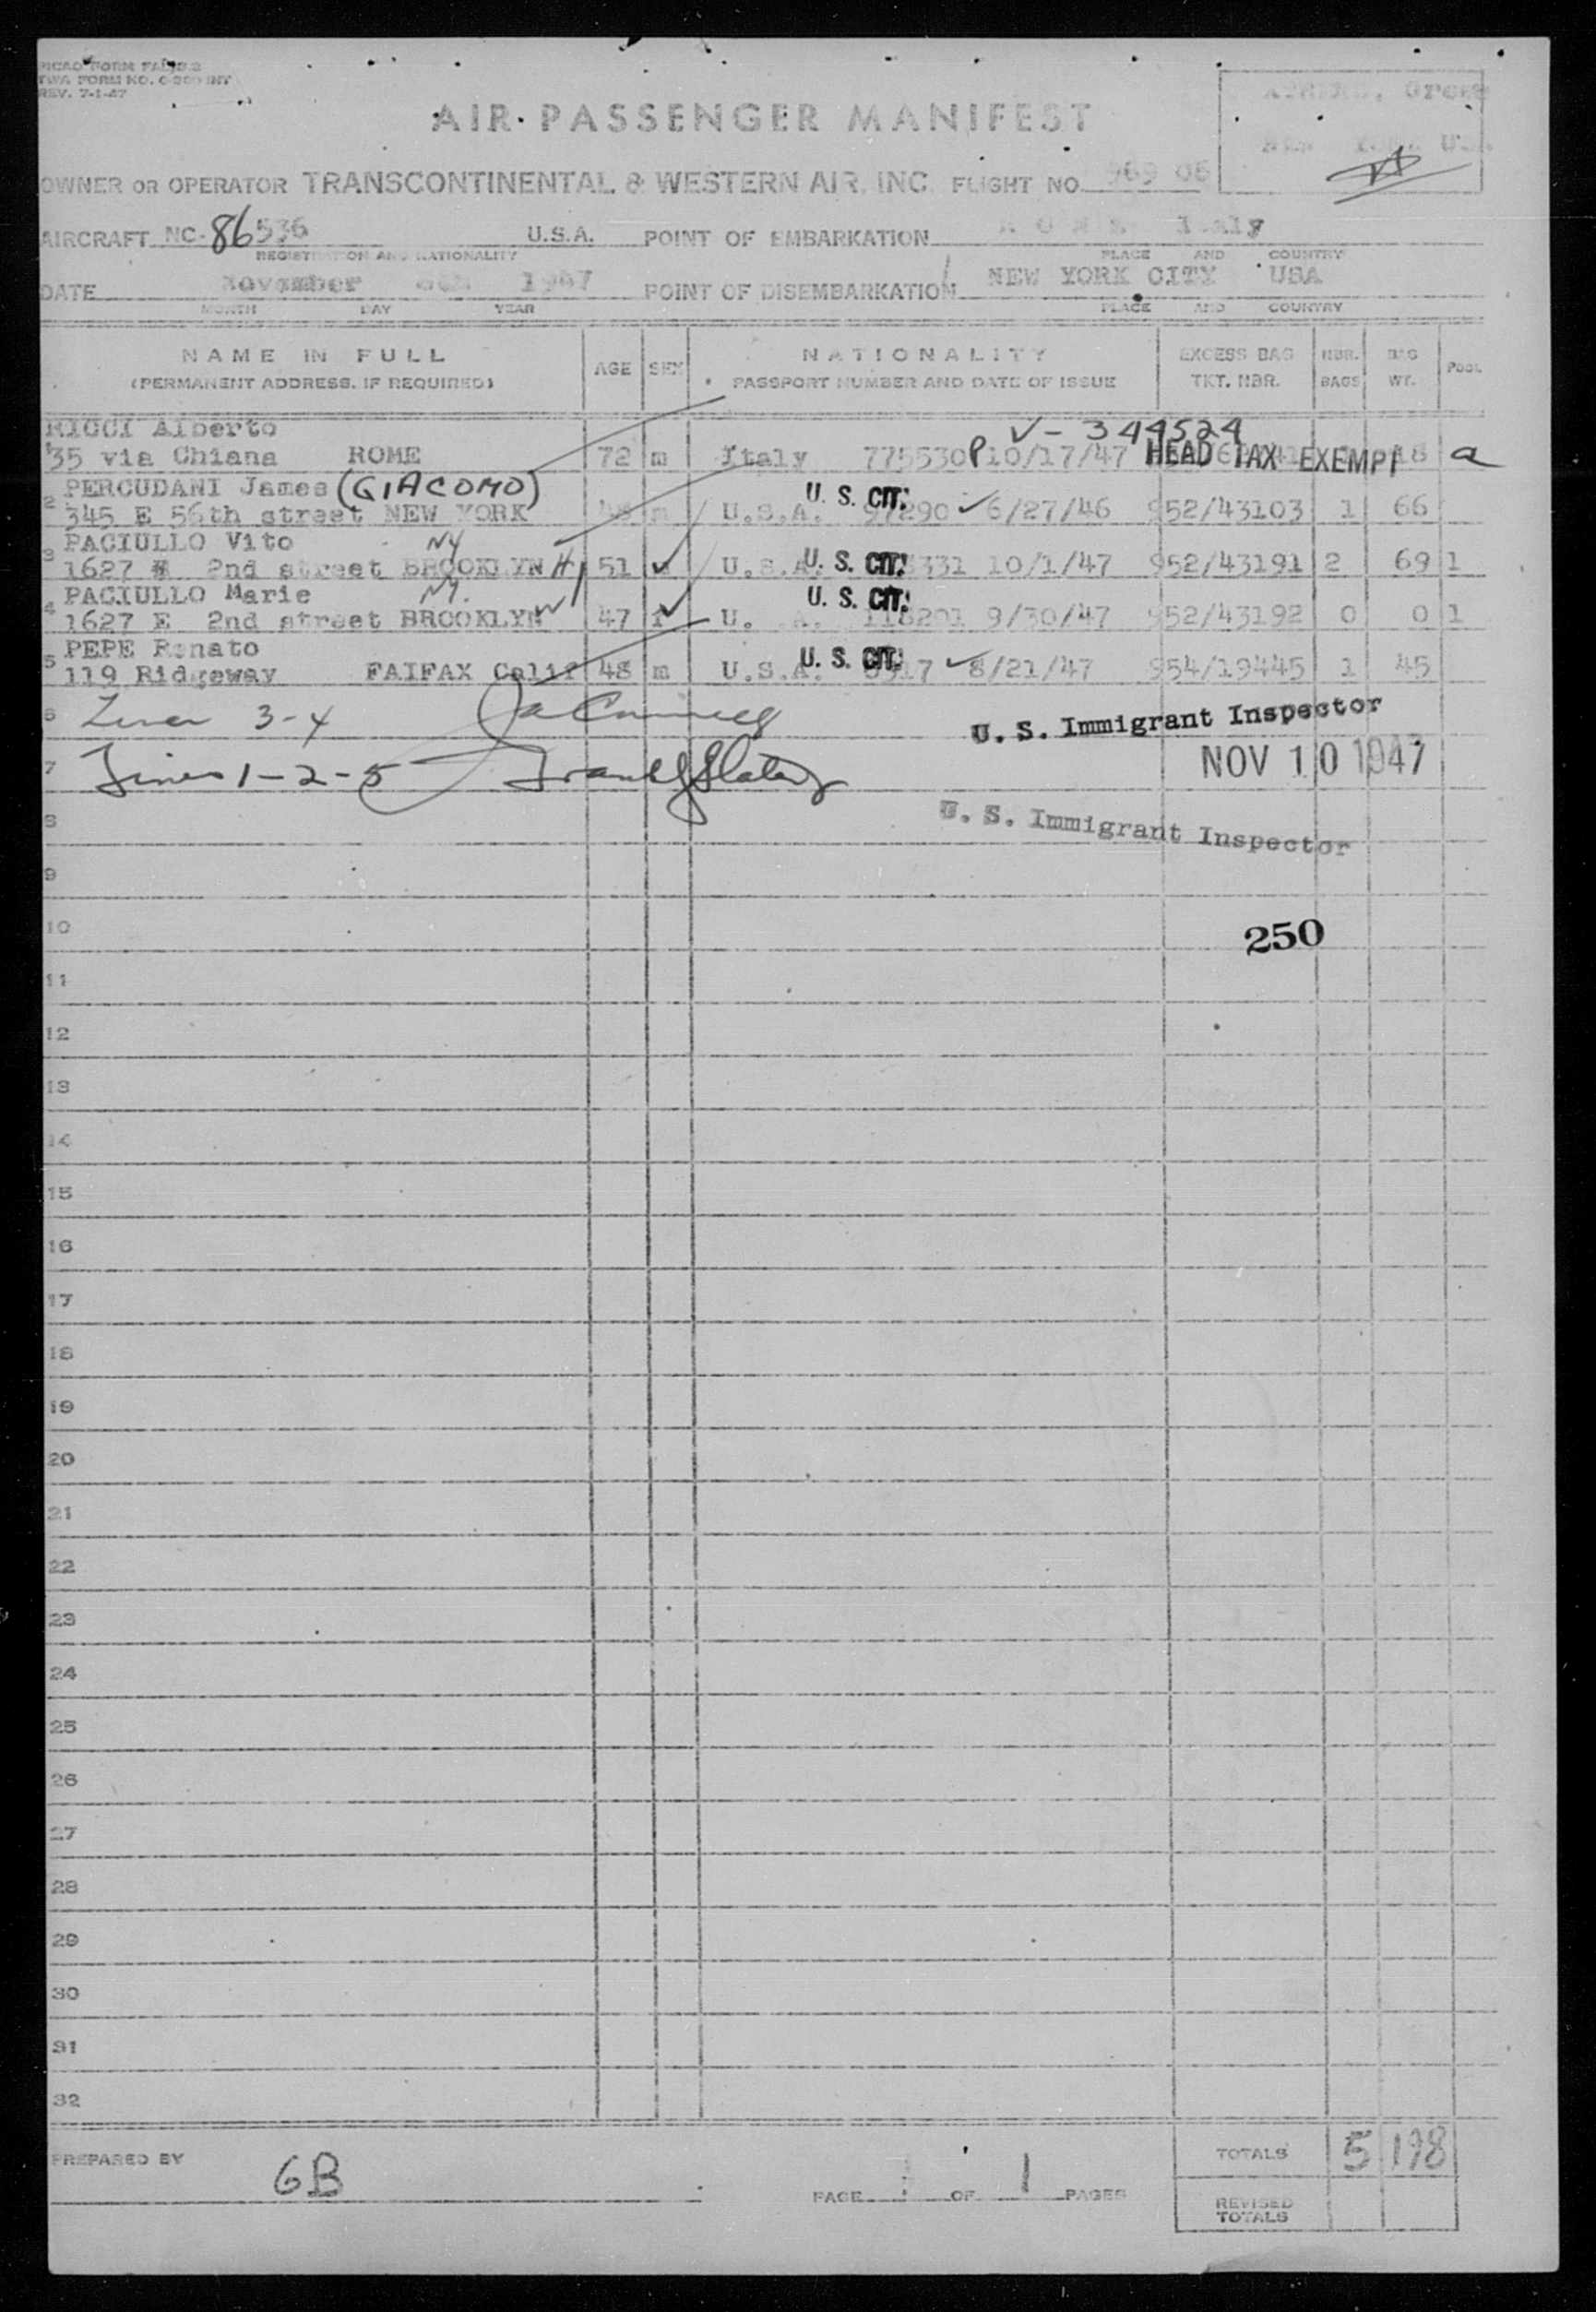 ICAO FORM FAL
TWA FORM NO. INT
REV. 7-1-47
AIR PASSENGER MANIFEST
OWNER OR OPERATOR TRANSCONTINENTAL & WESTERN AIR, INC. FLIGHT NO. 969 06
AIRCRAFT NC-86536 U.S.A. POINT OF EMBARKATION ROME Italy
REGISTRATION AND NATIONALITY PLACE AND COUNTRY
DATE November 1947 POINT OF DISEMBARKATION NEW YORK CITY USA
MONTH DAY YEAR PLACE AND COUNTRY
NAME IN FULL (PERMANENT ADDRESS, IF REQUIRED) AGE SEX NATIONALITY PASSPORT NUMBER AND DATE OF ISSUE EXCESS BAG TKT. NBR. NBR. BAGS BAG WT. POOL
RICCI Alberto V-344524
35 via Chiana ROME 72 m Italy 775530P 10/17/47 HEAD TAX EXEMPT 18 a
PERCUDANI James (GIACOMO) U. S. CIT.
2 345 E 56th street NEW YORK m U.S.A. 97290 6/27/46 952/43103 1 66
PACIULLO Vito NY
3 1627 2nd street BROOKLYN 51 U.S.A. U. S. CIT. 331 10/1/47 952/43191 2 69 1
PACIULLO Marie NY. U. S. CIT.
4 1627 E 2nd street BROOKLYN 47 f U. A. 118201 9/30/47 952/43192 0 0 1
PEPE Renato U. S. CIT.
5 119 Ridgeway FAIFAX Calif 48 m U.S.A. 6917 8/21/47 954/19445 1 45
6 Lines 3-4 U. S. Immigrant Inspector
7 Lines 1-2-5 NOV 10 1947
8 U. S. Immigrant Inspector
9
10 250
11
12
13
14
15
16
17
18
19
20
21
22
23
24
25
26
27
28
29
30
31
32
PREPARED BY GB PAGE 1 OF 1 PAGES TOTALS 5 198
REVISED TOTALS